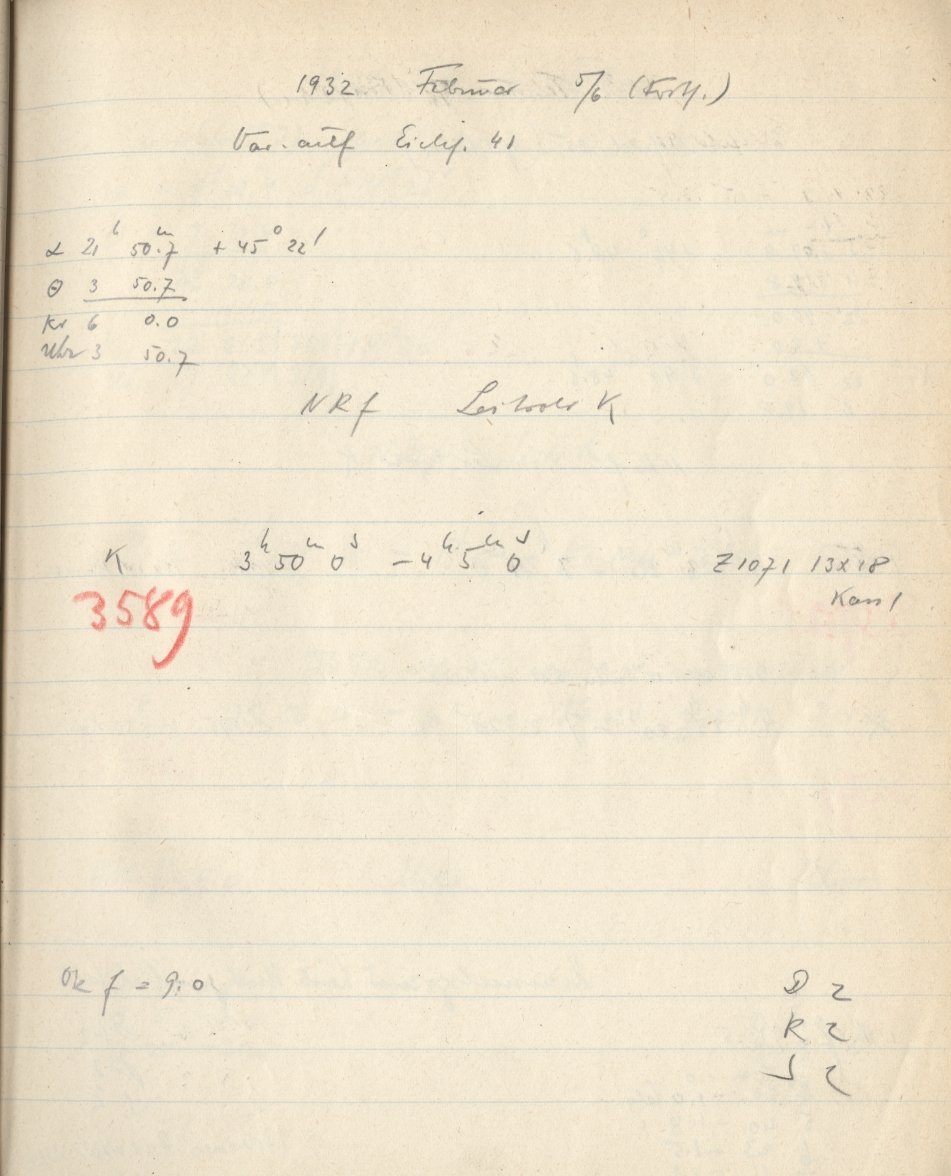 1932 Februar 5/6 (Forts.)
Var. auf Eichf. 41
α 21ʰ 50.ᵐ7 + 45° 22′
Θ 3 50.7
Kr 6 0.0
Uhr 3 50.7
NRf Leitrohr K
K 3ʰ 50ᵐ 0ˢ – 4ʰ 5ᵐ 0ˢ Z1071 13x18
Kass 1
3589
Ok f = 9.0
D 2
R 2
S 2